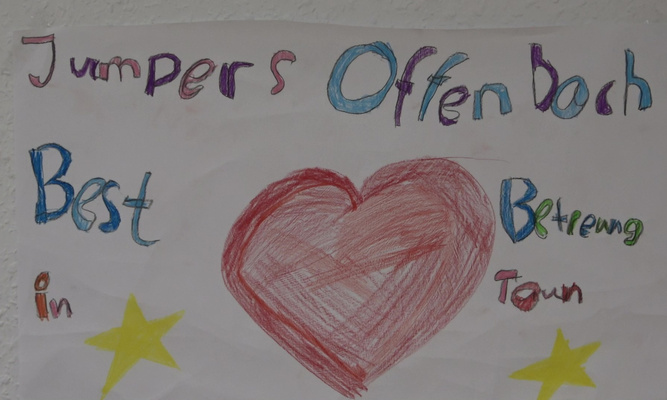 Jumpers Offenbach
Best Betreung
in Toun